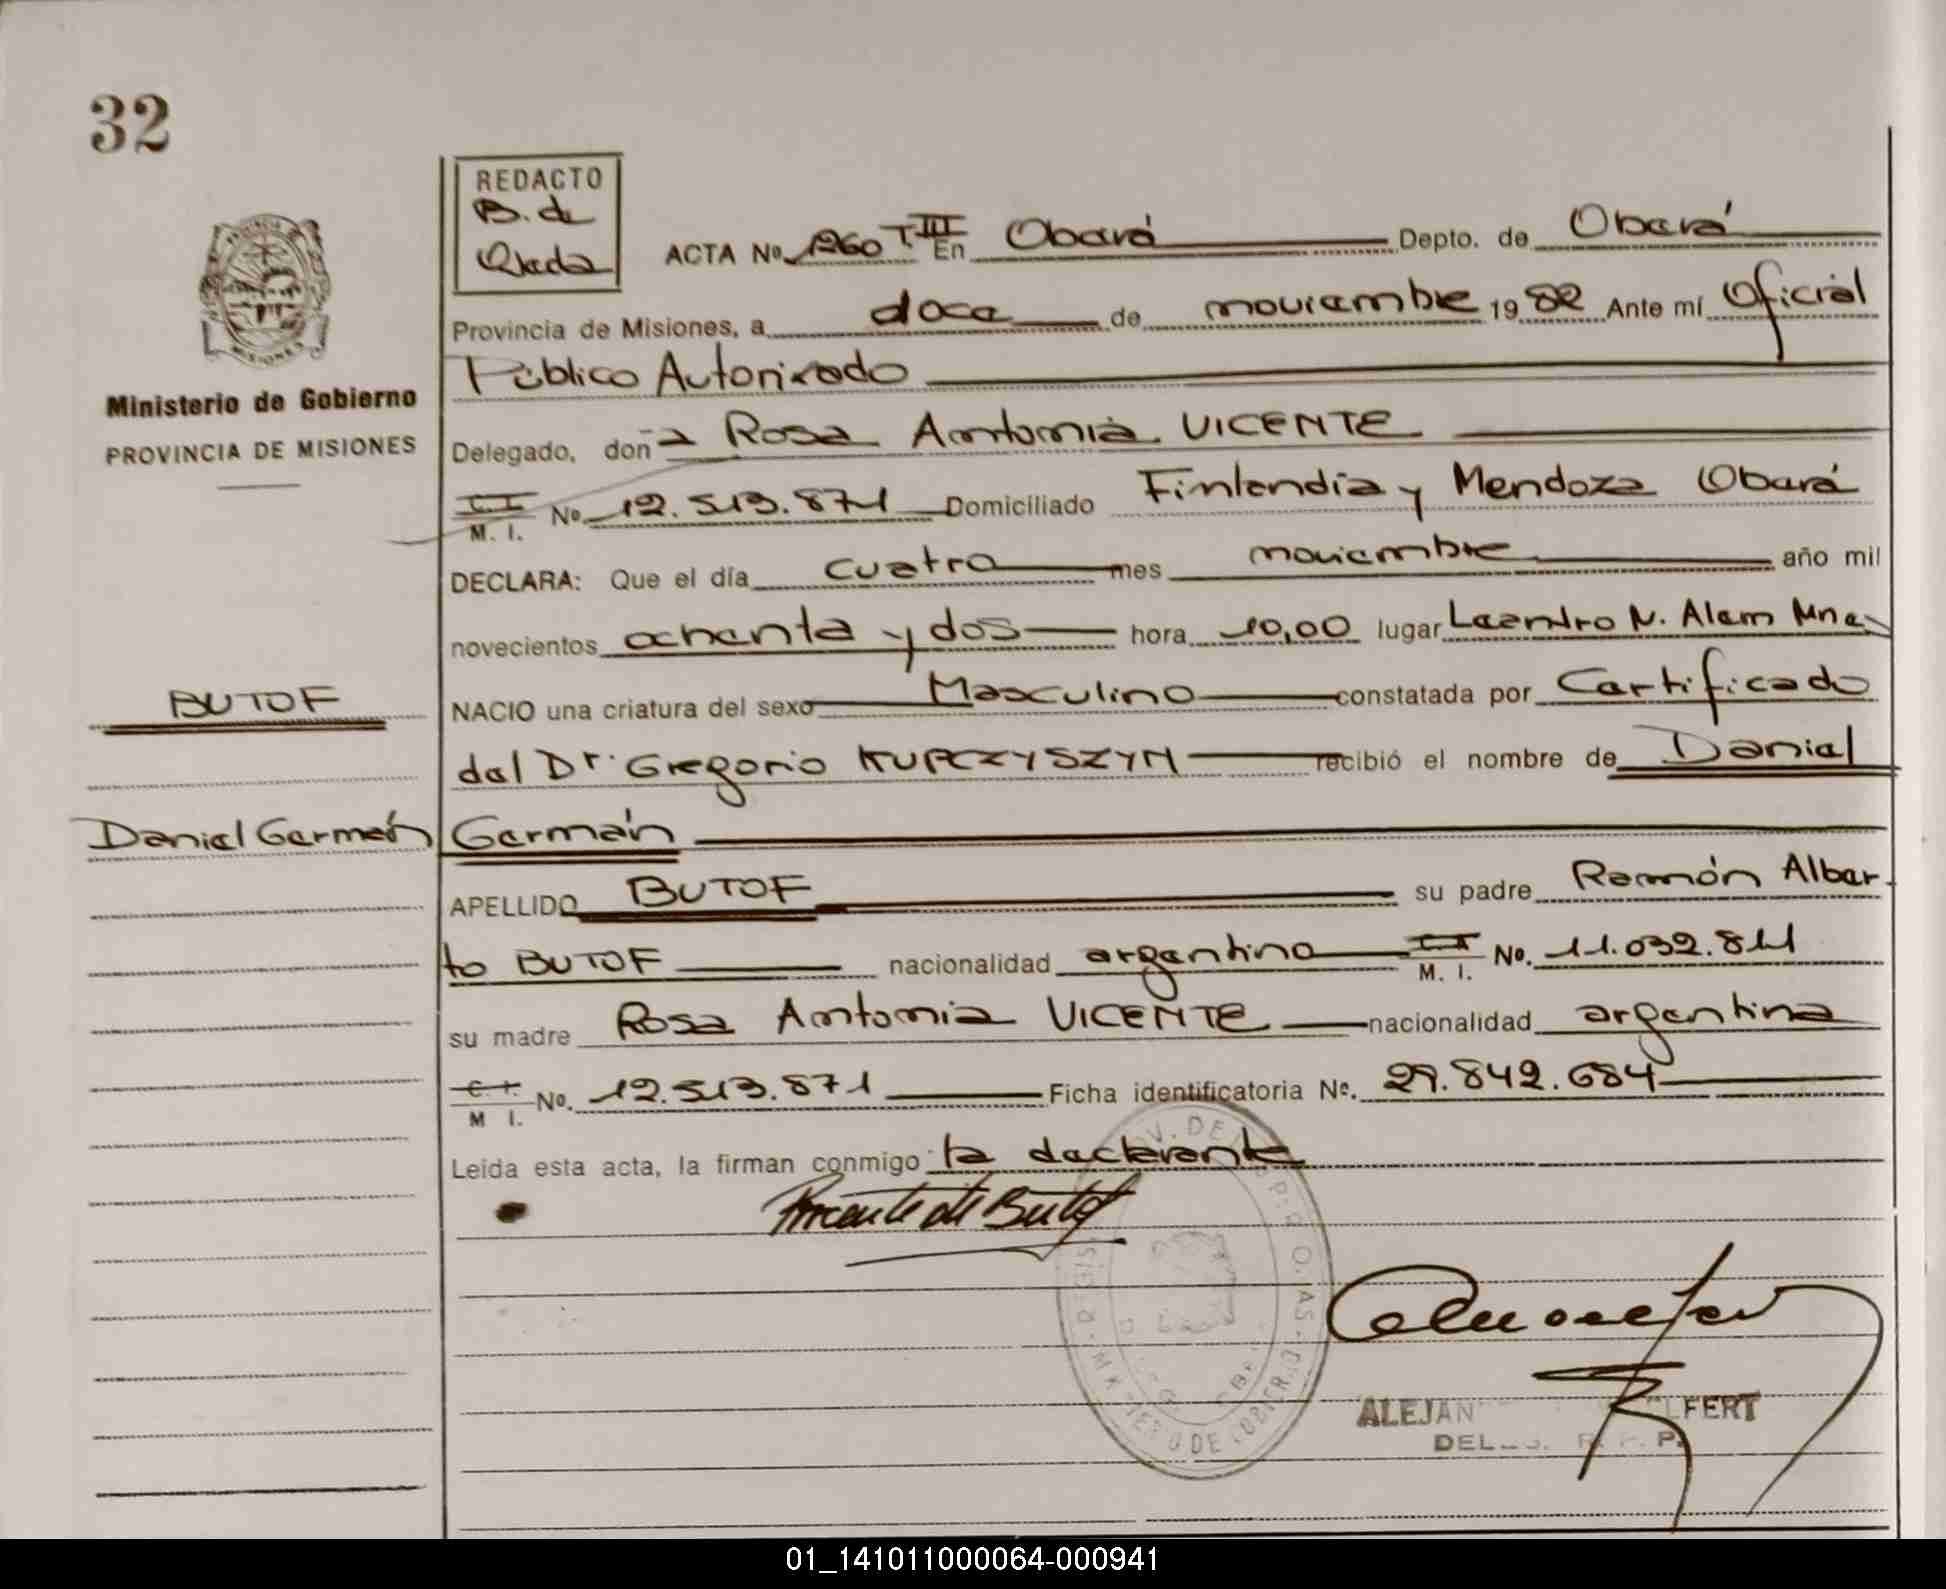 32
REDACTO
B. de
Ojeda
ACTA Nº 1260 T.III En Oberá Depto. de Oberá
Provincia de Misiones, a doce de noviembre 19 82 Ante mí Oficial
Público Autorizado
Ministerio de Gobierno
PROVINCIA DE MISIONES
Delegado, don a Rosa Antonia VICENTE
C. I. M. I. Nº 12.513.871 Domiciliado Finlandia y Mendoza Oberá
DECLARA: Que el día cuatro mes noviembre año mil
novecientos ochenta y dos hora 10,00 lugar Leandro N. Alem Mnes
BUTOF
NACIO una criatura del sexo Masculino constatada por Certificado
del Dr. Gregorio KUPCZYSZYN recibió el nombre de Daniel
Daniel Germán
Germán
APELLIDO BUTOF su padre Ramón Alber-
to BUTOF nacionalidad argentino C. I. M. I. No. 11.032.811
su madre Rosa Antonia VICENTE nacionalidad argentina
C. I. M I. Nº. 12.513.871 Ficha identificatoria Nº. 29.842.684
Leida esta acta, la firman conmigo la declarante
Vicente de Butof
ALEJAN LFERT